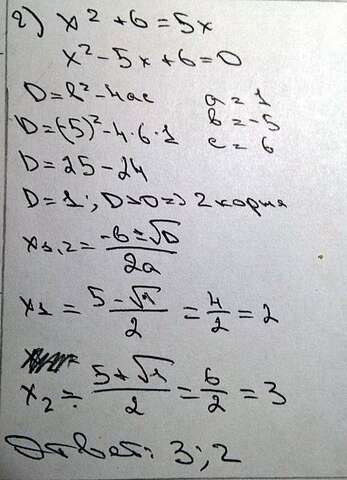 2) x² + 6 = 5x
x² - 5x + 6 = 0
D = b² - 4ac a = 1
D = (-5)² - 4·6·1 b = -5
D = 25 - 24 c = 6
D = 1; D>0 => 2 корня
x₁,₂ = (-b ± √D)/2a
x₁ = (5 - √1)/2 = 4/2 = 2
x₂ = (5 + √1)/2 = 6/2 = 3
Ответ: 3; 2